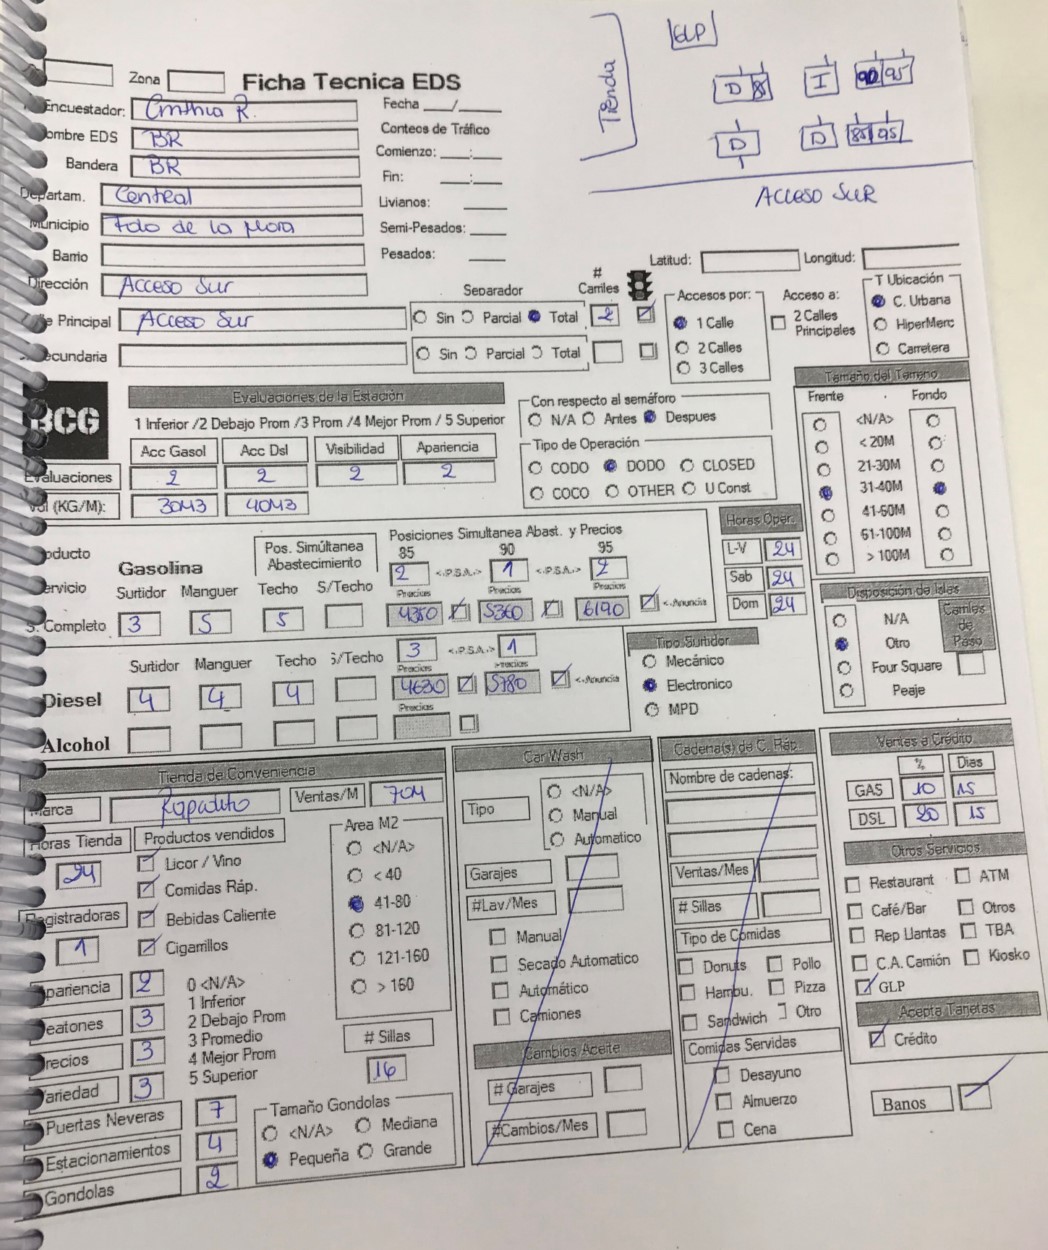 GLP
Tienda
D 8 I 90 95
D D 85 95
ACCESO SUR
Zona
Ficha Tecnica EDS
Encuestador: Cinthia R. Fecha ___/___
ombre EDS BR Conteos de Tráfico
Bandera BR Comienzo: ___:___
Departam. Central Fin: ___:___
Municipio Fdo de la Mora Livianos: ____
Barrio Semi-Pesados: ____
Dirección Acceso Sur Pesados: ____
Latitud: Longitud:
Separador # Carriles
e Principal Acceso Sur Sin Parcial Total 2
ecundaria Sin Parcial Total
Accesos por:
1 Calle
2 Calles
3 Calles
Acceso a:
2 Calles Principales
T Ubicación
C. Urbana
HiperMerc
Carretera
BCG
Evaluaciones de la Estación
1 Inferior /2 Debajo Prom /3 Prom /4 Mejor Prom / 5 Superior
Acc Gasol Acc Dsl Visibilidad Apariencia
Evaluaciones 2 2 2 2
Vol (KG/M): 30M3 40M3
Con respecto al semáforo
N/A Antes Despues
Tipo de Operación
CODO DODO CLOSED
COCO OTHER U Const
Tamaño del Terreno
Frente Fondo
<N/A>
< 20M
21-30M
31-40M
41-60M
61-100M
> 100M
Horas Oper.
L-V 24
Sab 24
Dom 24
oducto
ervicio
Gasolina
Pos. Simúltanea Abastecimiento
Posiciones Simultanea Abast. y Precios
85 90 95
2 <.P.S.A.> 1 <.P.S.A.> 2
Surtidor Manguer Techo S/Techo Precios Precios Precios
S. Completo 3 5 5 4350 5360 6190 <-Anuncia
3 <.P.S.A.> 1
Surtidor Manguer Techo S/Techo Precios Precios
Diesel 4 4 4 4630 5780 <-Anuncia
Precios
Alcohol
Tipo Surtidor
Mecánico
Electronico
MPD
Disposición de Islas
N/A
Otro
Four Square
Peaje
Carriles de Paso
Tienda de Conveniencia
Marca Rapidito Ventas/M 70M
Horas Tienda 24
Registradoras 1
Productos vendidos
Licor / Vino
Comidas Ráp.
Bebidas Caliente
Cigarrillos
Area M2
<N/A>
< 40
41-80
81-120
121-160
> 160
pariencia 2
eatones 3
recios 3
ariedad 3
0 <N/A>
1 Inferior
2 Debajo Prom
3 Promedio
4 Mejor Prom
5 Superior
# Sillas
16
Puertas Neveras 7
Estacionamientos 4
Gondolas 2
Tamaño Gondolas
<N/A> Mediana
Pequeña Grande
Car Wash
Tipo
<N/A>
Manual
Automatico
Garajes
#Lav/Mes
Manual
Secado Automatico
Automático
Camiones
Cambios Aceite
# Garajes
#Cambios/Mes
Cadena(s) de C. Ráp.
Nombre de cadenas:
Ventas/Mes
# Sillas
Tipo de Comidas
Donuts Pollo
Hambu. Pizza
Sandwich Otro
Comidas Servidas
Desayuno
Almuerzo
Cena
Ventas a Crédito
% Dias
GAS 10 15
DSL 20 15
Otros Servicios
Restaurant ATM
Café/Bar Otros
Rep Llantas TBA
C.A. Camión Kiosko
GLP
Acepta Tarjetas
Crédito
Banos